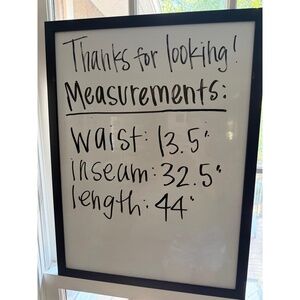 Thanks for looking!
Measurements:
waist: 13.5"
inseam: 32.5"
length: 44"